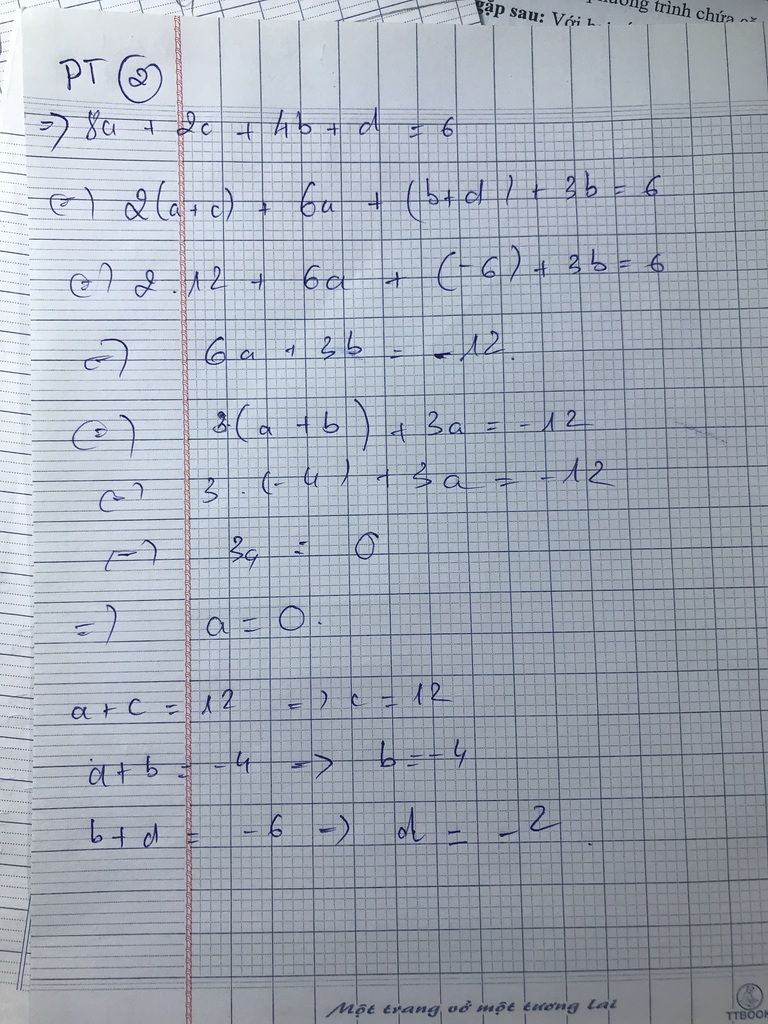 phương trình chứa
gặp sau: Với
PT ②
=> 8a + 2c + 4b + d = 6
(=) 2(a+c) + 6a + (b+d) + 3b = 6
(=) 2.12 + 6a + (-6) + 3b = 6
(=) 6a + 3b = -12.
(=) 3(a + b) + 3a = -12
(=) 3 . (-4) + 3a = -12
(=) 3a = 0
=> a = 0.
a + c = 12 => c = 12
a + b = -4 => b = -4
b + d = -6 => d = -2.
Một trang vở một tương lai
TTBOOK